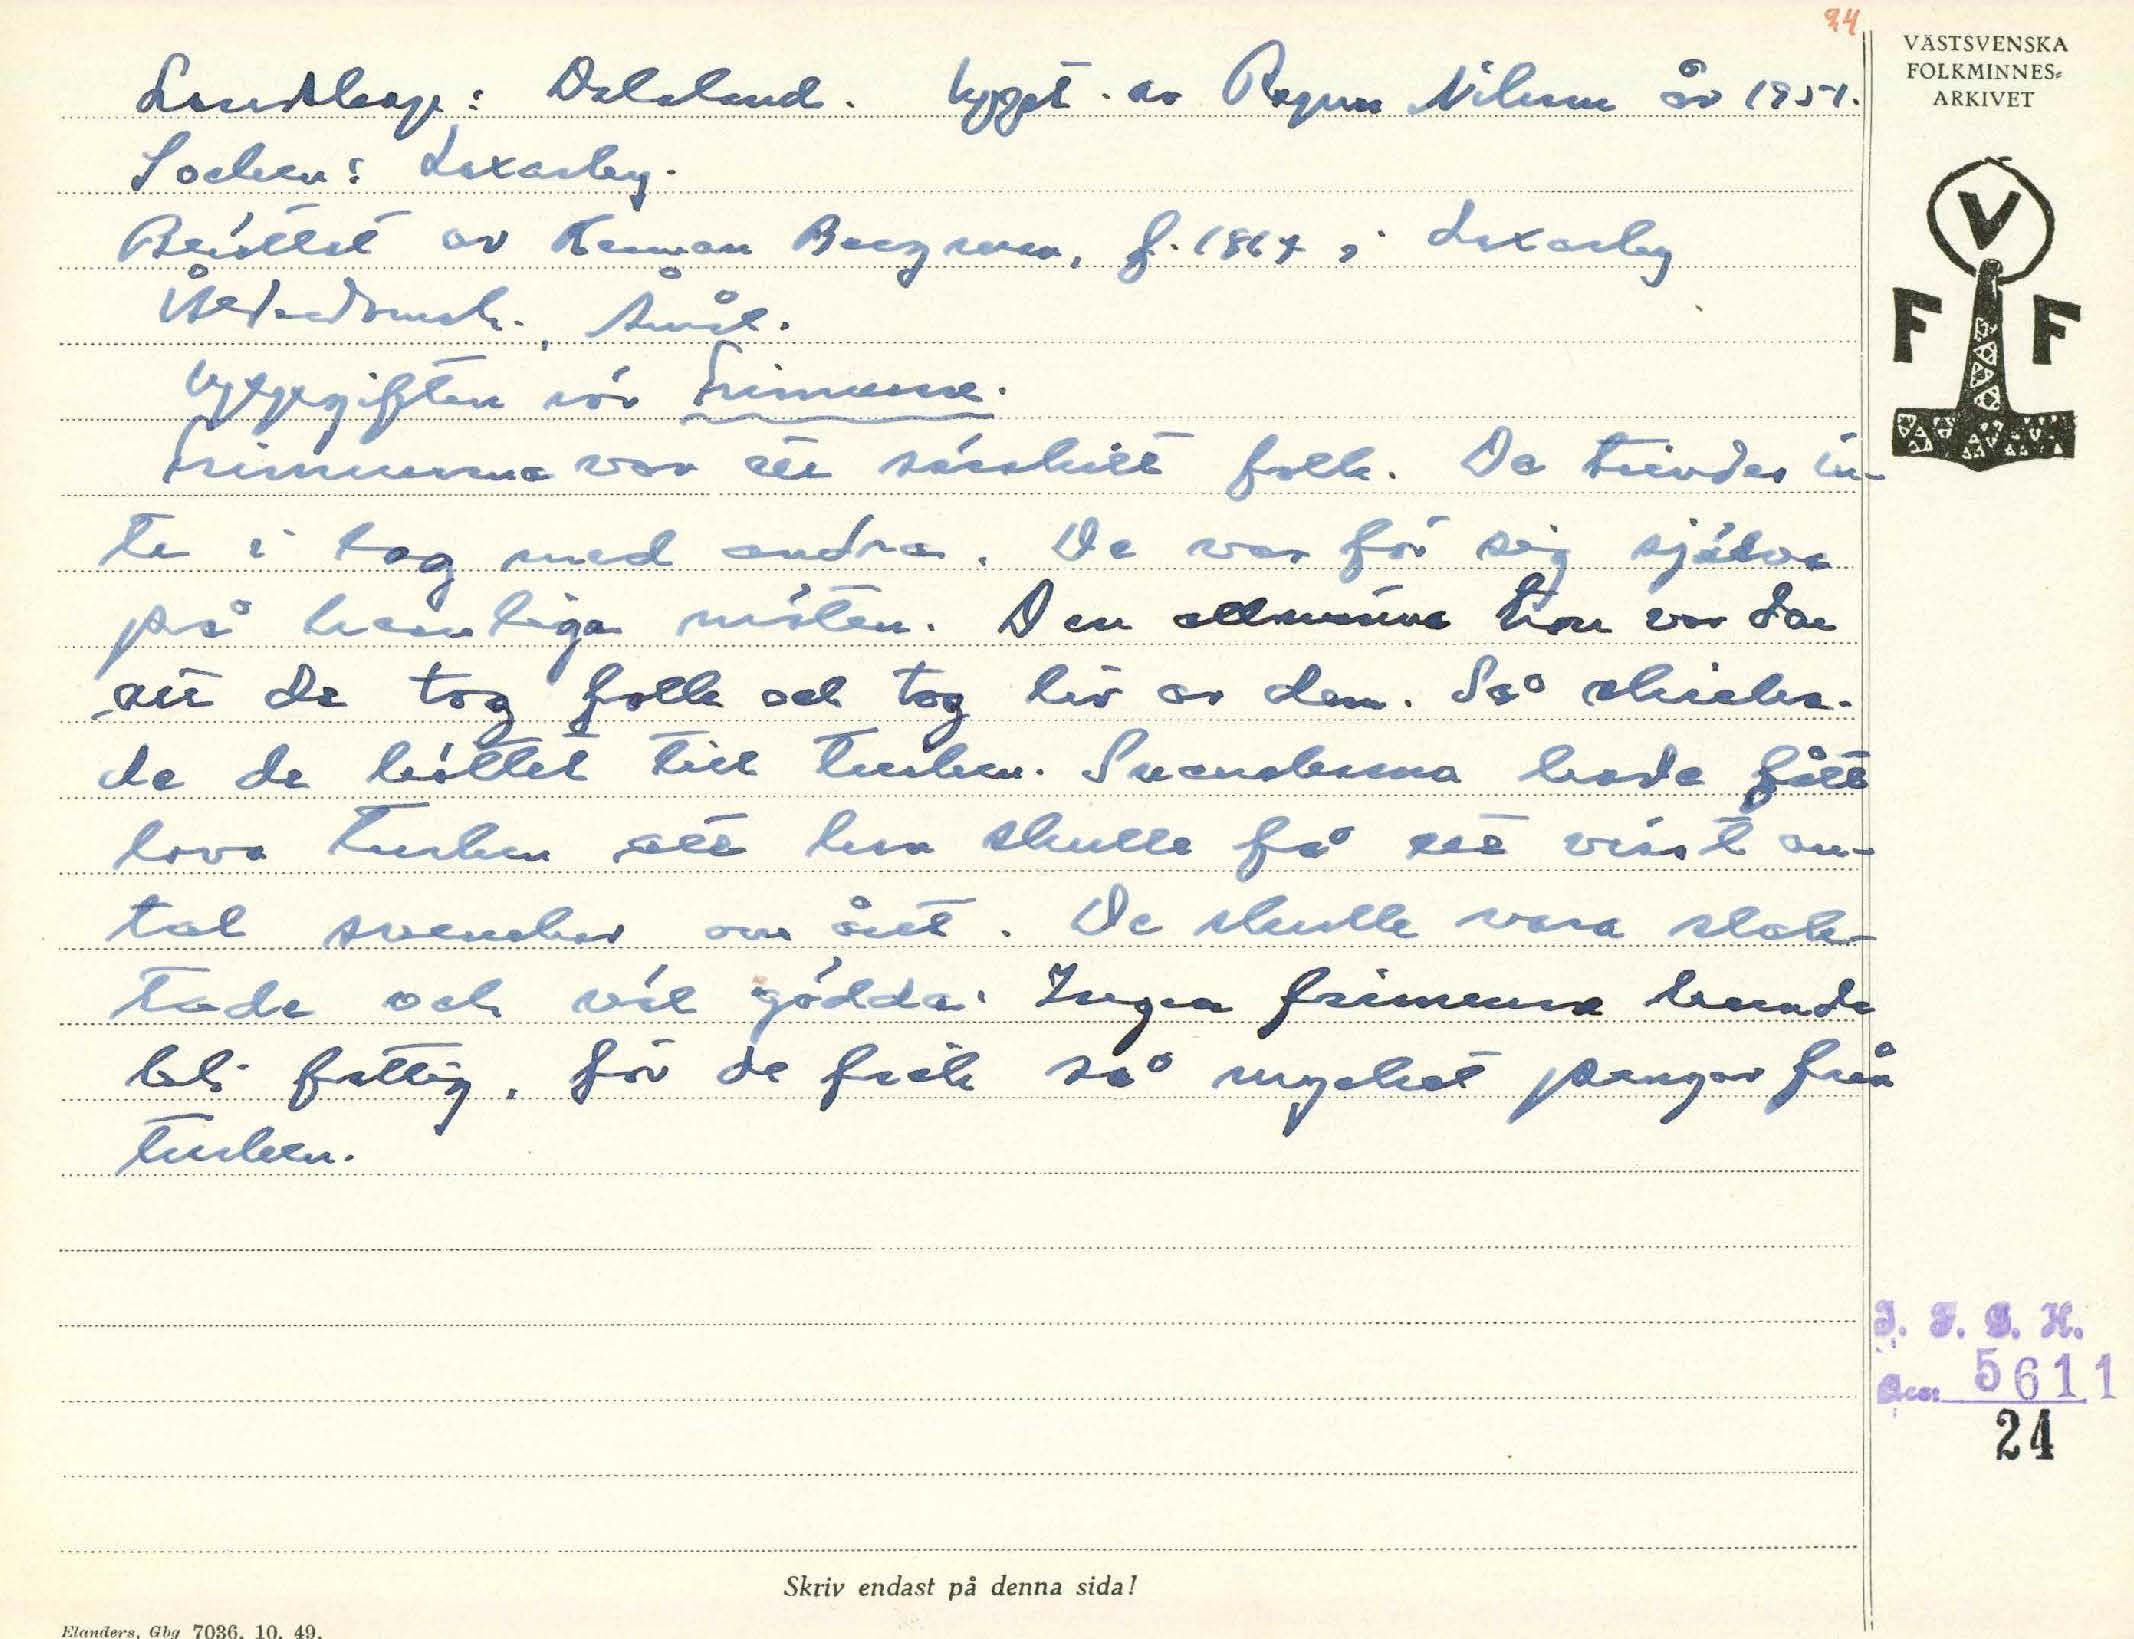 24
VÄSTSVENSKA
FOLKMINNES-
ARKIVET
Landskap: Dalsland. Uppt. av Ragnar Nilsson år 1951.
Socken: Laxarby.
Berättat av Herman Bergman, f. 1864 i Laxarby
Ålderdomsh., Åmål.
Uppgiften rör Frimurare.
Frimurarna var ett särskilt folk. De trivdes in-
te i lag med andra. De var för sig själva
på hemliga möten. Den allmänna tron var den
att de tog folk och tog liv av dem. Så skicka-
de de köttet till turken. Svenskarna hade fått
lova turken att han skulle få ett visst an-
tal svenskar om året. De skulle vara slak-
tade och väl gödda. Ingen frimurare kunde
bli fattig, för de fick så mycket pengar från
turken.
V
F F
I. F. G. H.
Acc. 5611
24
Skriv endast på denna sida!
Elanders, Gbg 7036. 10. 49.